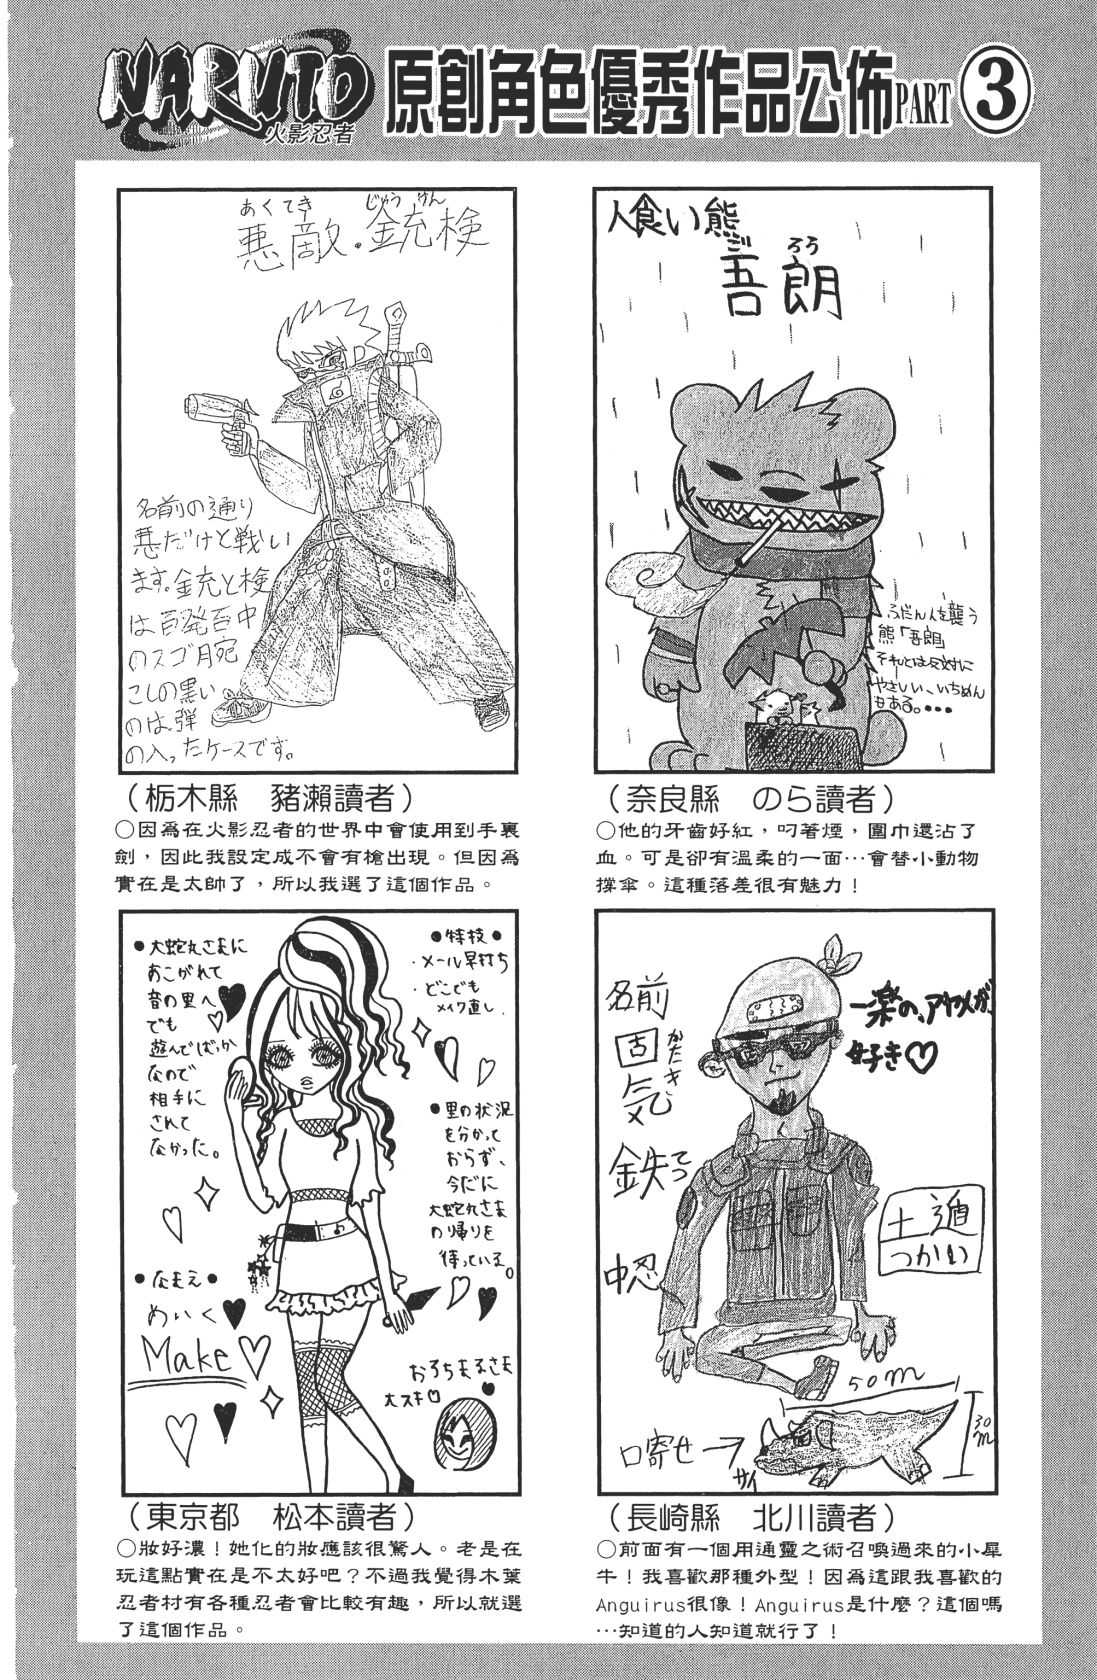 NARUTO
火影忍者
原創角色優秀作品公佈PART③
あくてき じゅうけん
悪敵・銃検
名前の通り
悪だけと戦い
ます。銃と検
は百発百中
のスゴ腕
こしの黒い
のは、弾
の入ったケースです。
(栃木縣 豬瀨讀者)
○因為在火影忍者的世界中會使用到手裏
劍，因此我設定成不會有槍出現。但因為
實在是太帥了，所以我選了這個作品。
人食い熊
ごろう
吾朗
ふだん人を襲う
熊「吾朗」
それとは反対に
やさしい、いちめん
もある。・・・
(奈良縣 のら讀者)
○他的牙齒好紅，叼著煙，圍巾還沾了
血。可是卻有溫柔的一面…會替小動物
撐傘。這種落差很有魅力！
●大蛇丸さまに
あこがれて
音の里へ
でも
遊んでばっか
なので
相手に
されて
なかった。
●特技●
・メール早打ち
・どこでも
メイク直し
●里の状況
を分かって
おらず、
今だに
大蛇丸さま
の帰りを
待っている。
●なまえ●
めいく♥
Make♡
おろちまるさま
大スキ♡
(東京都 松本讀者)
○妝好濃！她化的妝應該很驚人。老是在
玩這點實在是不太好吧？不過我覺得木葉
忍者村有各種忍者會比較有趣，所以就選
了這個作品。
名前
固気 かたき
鉄 てつ
中忍
一楽の、アヤメが
好き♡
土遁
つかい
50m
30m
口寄せ→
サイ
(長崎縣 北川讀者)
○前面有一個用通靈之術召喚過來的小犀
牛！我喜歡那種外型！因為這跟我喜歡的
Anguirus很像！Anguirus是什麼？這個嗎
…知道的人知道就行了！